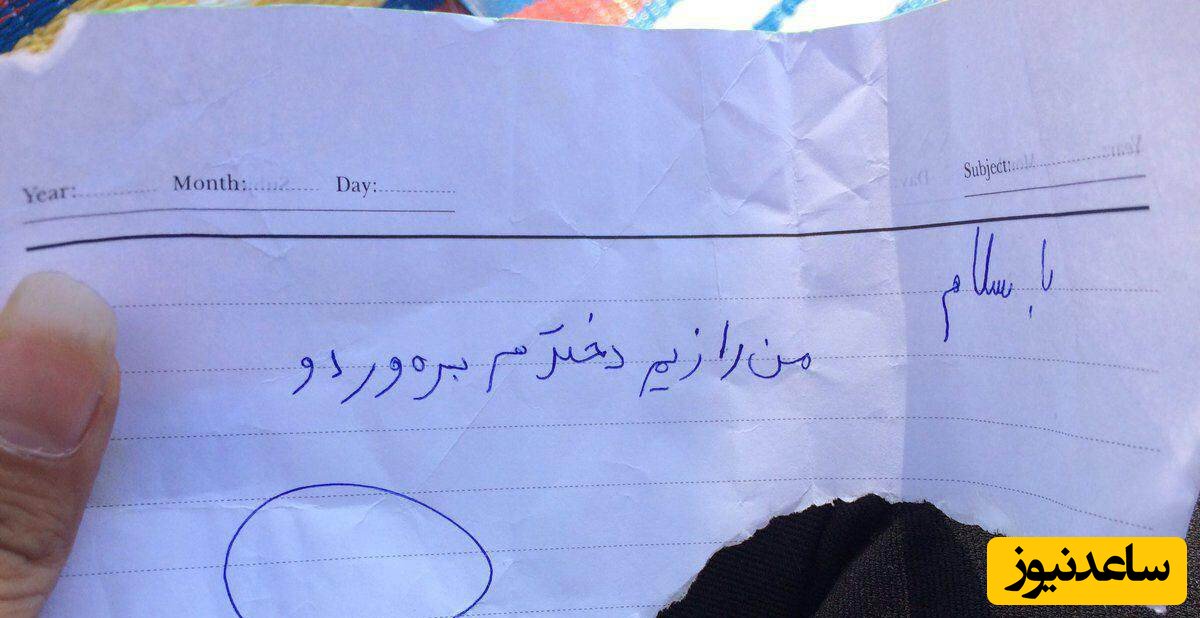 Year:............ Month:............ Day:............ Subject:............
با سلام
من رازیم دخترم بره وردو
ساعدنیوز